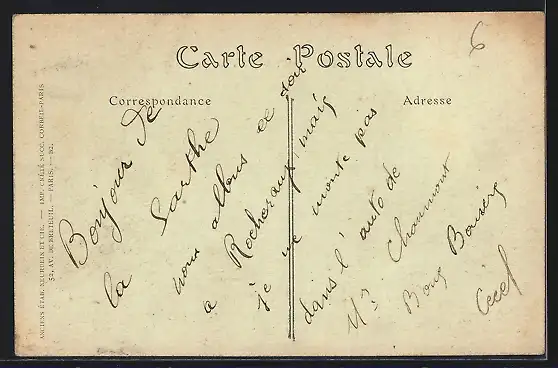 Carte Postale
Correspondance
Adresse
6
Bonjour de
la Sarthe
nous allons ce soir
a Rocheray, mais
je ne monte pas
dans l'auto de
Mr Chaumont
Bons Baisers
Cecel
ANCIENS ÉTAB. NEURDEIN ET CIE. — IMP. CRÉTÉ SUCC. CORBEIL-PARIS
52, AV. DE BRETEUIL. — PARIS. —